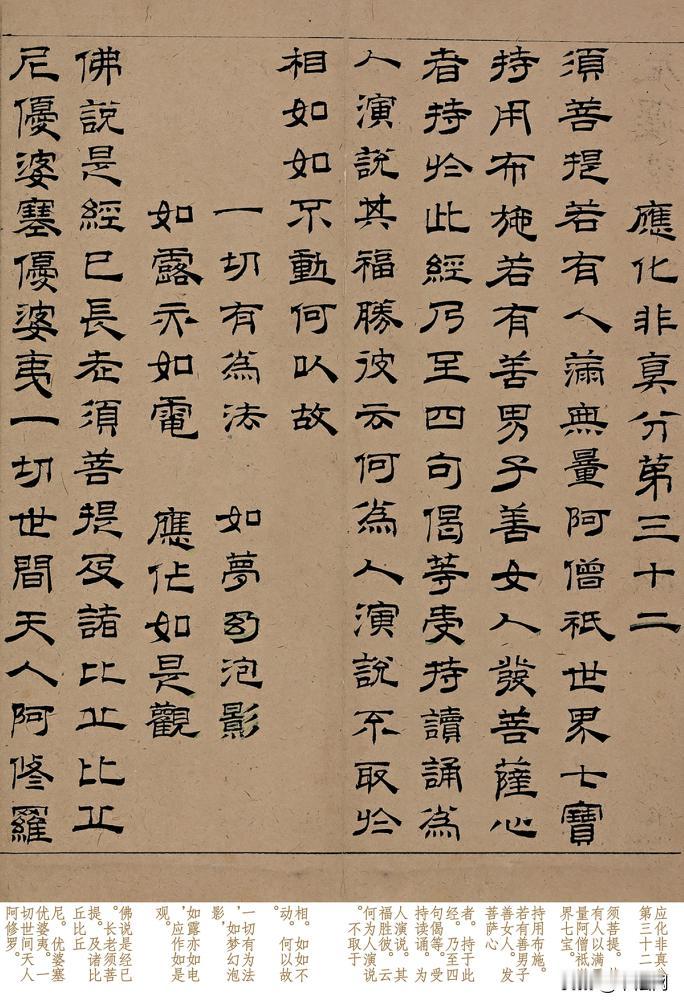 應化非真分第三十二
須菩提若有人滿無量阿僧祇世界七寶
持用布施若有善男子善女人發菩薩心
者持於此經乃至四句偈等受持讀誦為
人演說其福勝彼云何為人演說不取於
相如如不動何以故
一切有為法 如夢幻泡影
如露亦如電 應作如是觀
佛說是經已長老須菩提及諸比丘比丘
尼優婆塞優婆夷一切世間天人阿修羅
应化非真分
第三十二
须菩提。若
有人以满
量阿僧祇世
界七宝。
持用布施。
若有善男子
善女人。发
菩萨心
者。持于此
经。乃至四
句偈等。受
持读诵。为
人演说。其
福胜彼。云
何为人演说
。不取于
相。如如不
动。何以故
。
一切有为法
，如梦幻泡
影，
如露亦如电
，应作如是
观。
佛说是经已
。长老须善
提。及诸比
丘比丘
尼。优婆塞
优婆夷。一
切世间天人
阿修罗。